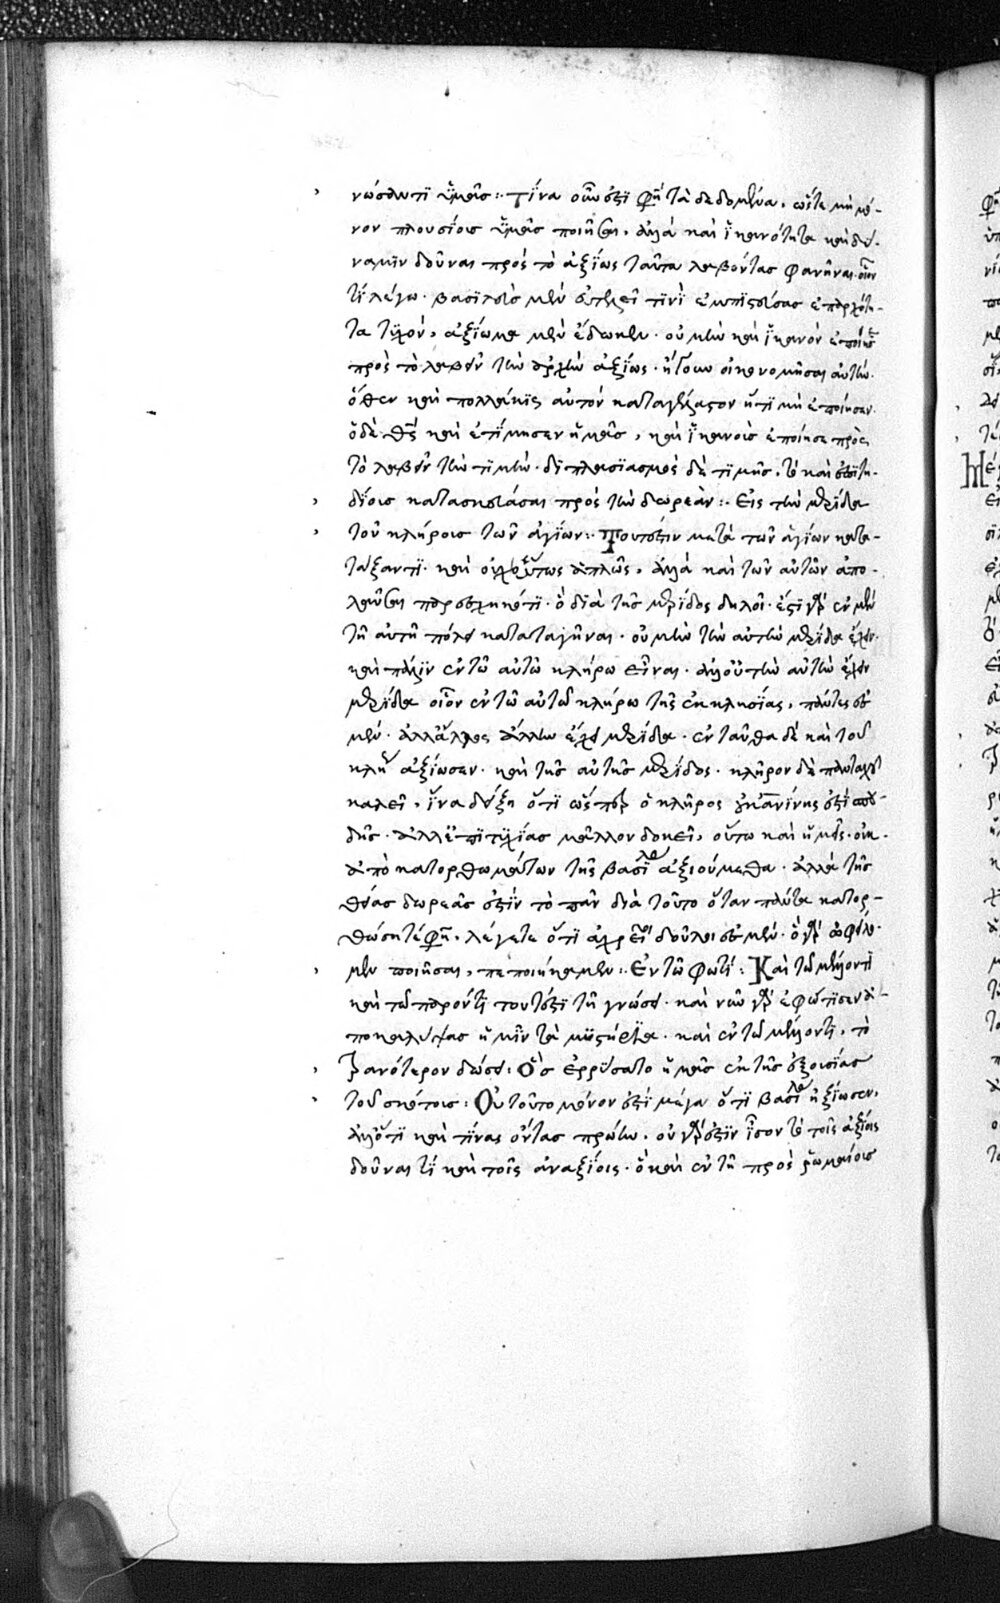 νώσαντι ὑμᾶς :· Τίνα οὖν ἐστὶ φησὶ τὰ δεδομένα, ὥστε μὴ μό-
νον πλουσίους ὑμᾶς ποιῆσαι, ἀλλὰ καὶ ἱκανότητα καὶ δύ-
ναμιν δοῦναι πρὸς τὸ ἀξίως ταῦτα λαβόντας φανῆναι. οἷόν
τι λέγω. βασιλεὺς μὲν εὐτελεῖ τινὶ ἐμπιστεύσας ἐπαρχότη-
τα τυχὸν, ἀξίωμα μὲν ἔδωκεν. οὐ μὴν καὶ ἱκανὸν ἐποίησε
πρὸς τὸ λαβεῖν τὴν ἀρχὴν ἀξίως. ἤγουν οἰκονομῆσαι αὐτήν.
ὅθεν καὶ πολλάκις αὐτὸν καταγέλαστον ἡ τιμὴ ἐποίησεν.
ὁ δὲ θεὸς καὶ ἐτίμησεν ἡμᾶς, καὶ ἱκανοὺς ἐποίησε πρὸς
τὸ λαβεῖν τὴν τιμήν. διπλασιασμὸς δὲ τιμῆς, τὸ καὶ ἐπιτη-
δείους κατασκευάσαι πρὸς τὴν δωρεάν :· Εἰς τὴν μερίδα
τοῦ κλήρου τῶν ἁγίων :· Τουτέστιν μετὰ τῶν ἁγίων κατα-
τάξαντι. καὶ οὐχ οὕτως ἁπλῶς, ἀλλὰ καὶ τῶν αὐτῶν ἀπο-
λαῦσαι παρεσχηκότι. ὁ διὰ τῆς μερίδος δηλοῖ. ἔστι γὰρ ἐν μὲν
τῇ αὐτῇ πόλει καταταγῆναι. οὐ μὴν τὴν αὐτὴν μερίδα ἔχειν.
καὶ πάλιν ἐν τῷ αὐτῷ κλήρῳ εἶναι. ἀλλ' οὐ τὴν αὐτὴν ἔχειν
μερίδα οἷον ἐν τῷ αὐτῷ κλήρῳ τῆς ἐκκλησίας, πάντες ἐσ
μέν. ἀλλ' ἄλλος ἄλλην ἔχει μερίδα. ἐνταῦθα δὲ καὶ τοῦ
κλήρου ἀξίωσεν. καὶ τῆς αὐτῆς μερίδος. κλῆρον δὲ πανταχοῦ
καλεῖ, ἵνα δείξῃ ὅτι ὥσπερ ὁ κλῆρος οὐκ ἀνδρείας ἐστὶ σπου-
δῆς. ἀλλ' ἐπιτυχίας μᾶλλον δοκεῖ, οὕτω καὶ ἡμεῖς. οὐκ
ἀπὸ κατορθωμάτων τῆς βασιλείας ἀξιούμεθα. ἀλλὰ τῆς
θείας δωρεᾶς ἐστὶν τὸ πᾶν διὰ τοῦτο ὅταν πάντα κατορ-
θώσητέ φησι, λέγετε ὅτι ἀχρεῖοι δοῦλοι ἐσμέν. ὃ γὰρ ὠφείλο-
μεν ποιῆσαι, πεποιήκαμεν :· Ἐν τῷ φωτί : Καὶ τῷ μέλλοντι
καὶ τῷ παρόντι τουτέστι τῇ γνώσει. καὶ νῦν γὰρ ἐφώτισεν ἀ-
ποκαλύψας ἡμῖν τὰ μυστήρια. καὶ ἐν τῷ μέλλοντι, τὸ
τρανότερον δώσει : Ὃς ἐρρύσατο ἡμᾶς ἐκ τῆς ἐξουσίας
τοῦ σκότους : Οὐ τοῦτο μόνον ἐστὶ μέγα ὅτι βασιλείας ἠξίωσεν,
ἀλλ' ὅτι καὶ τίνας ὄντας πρώην. οὐ γάρ ἐστιν ἴσον τὸ τοῖς ἀξίοις
δοῦναί τι καὶ τοῖς ἀναξίοις. ὃ καὶ ἐν τῇ πρὸς ῥωμαίους